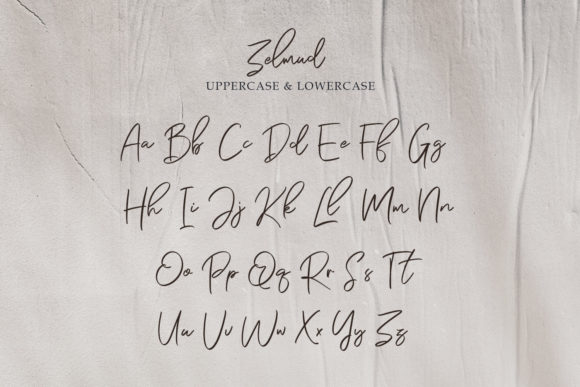 Zelmud
UPPERCASE & LOWERCASE
Aa Bb Cc Dd Ee Ff Gg
Hh Ii Jj Kk Ll Mm Nn
Oo Pp Qq Rr Ss Tt
Uu Vv Ww Xx Yy Zz